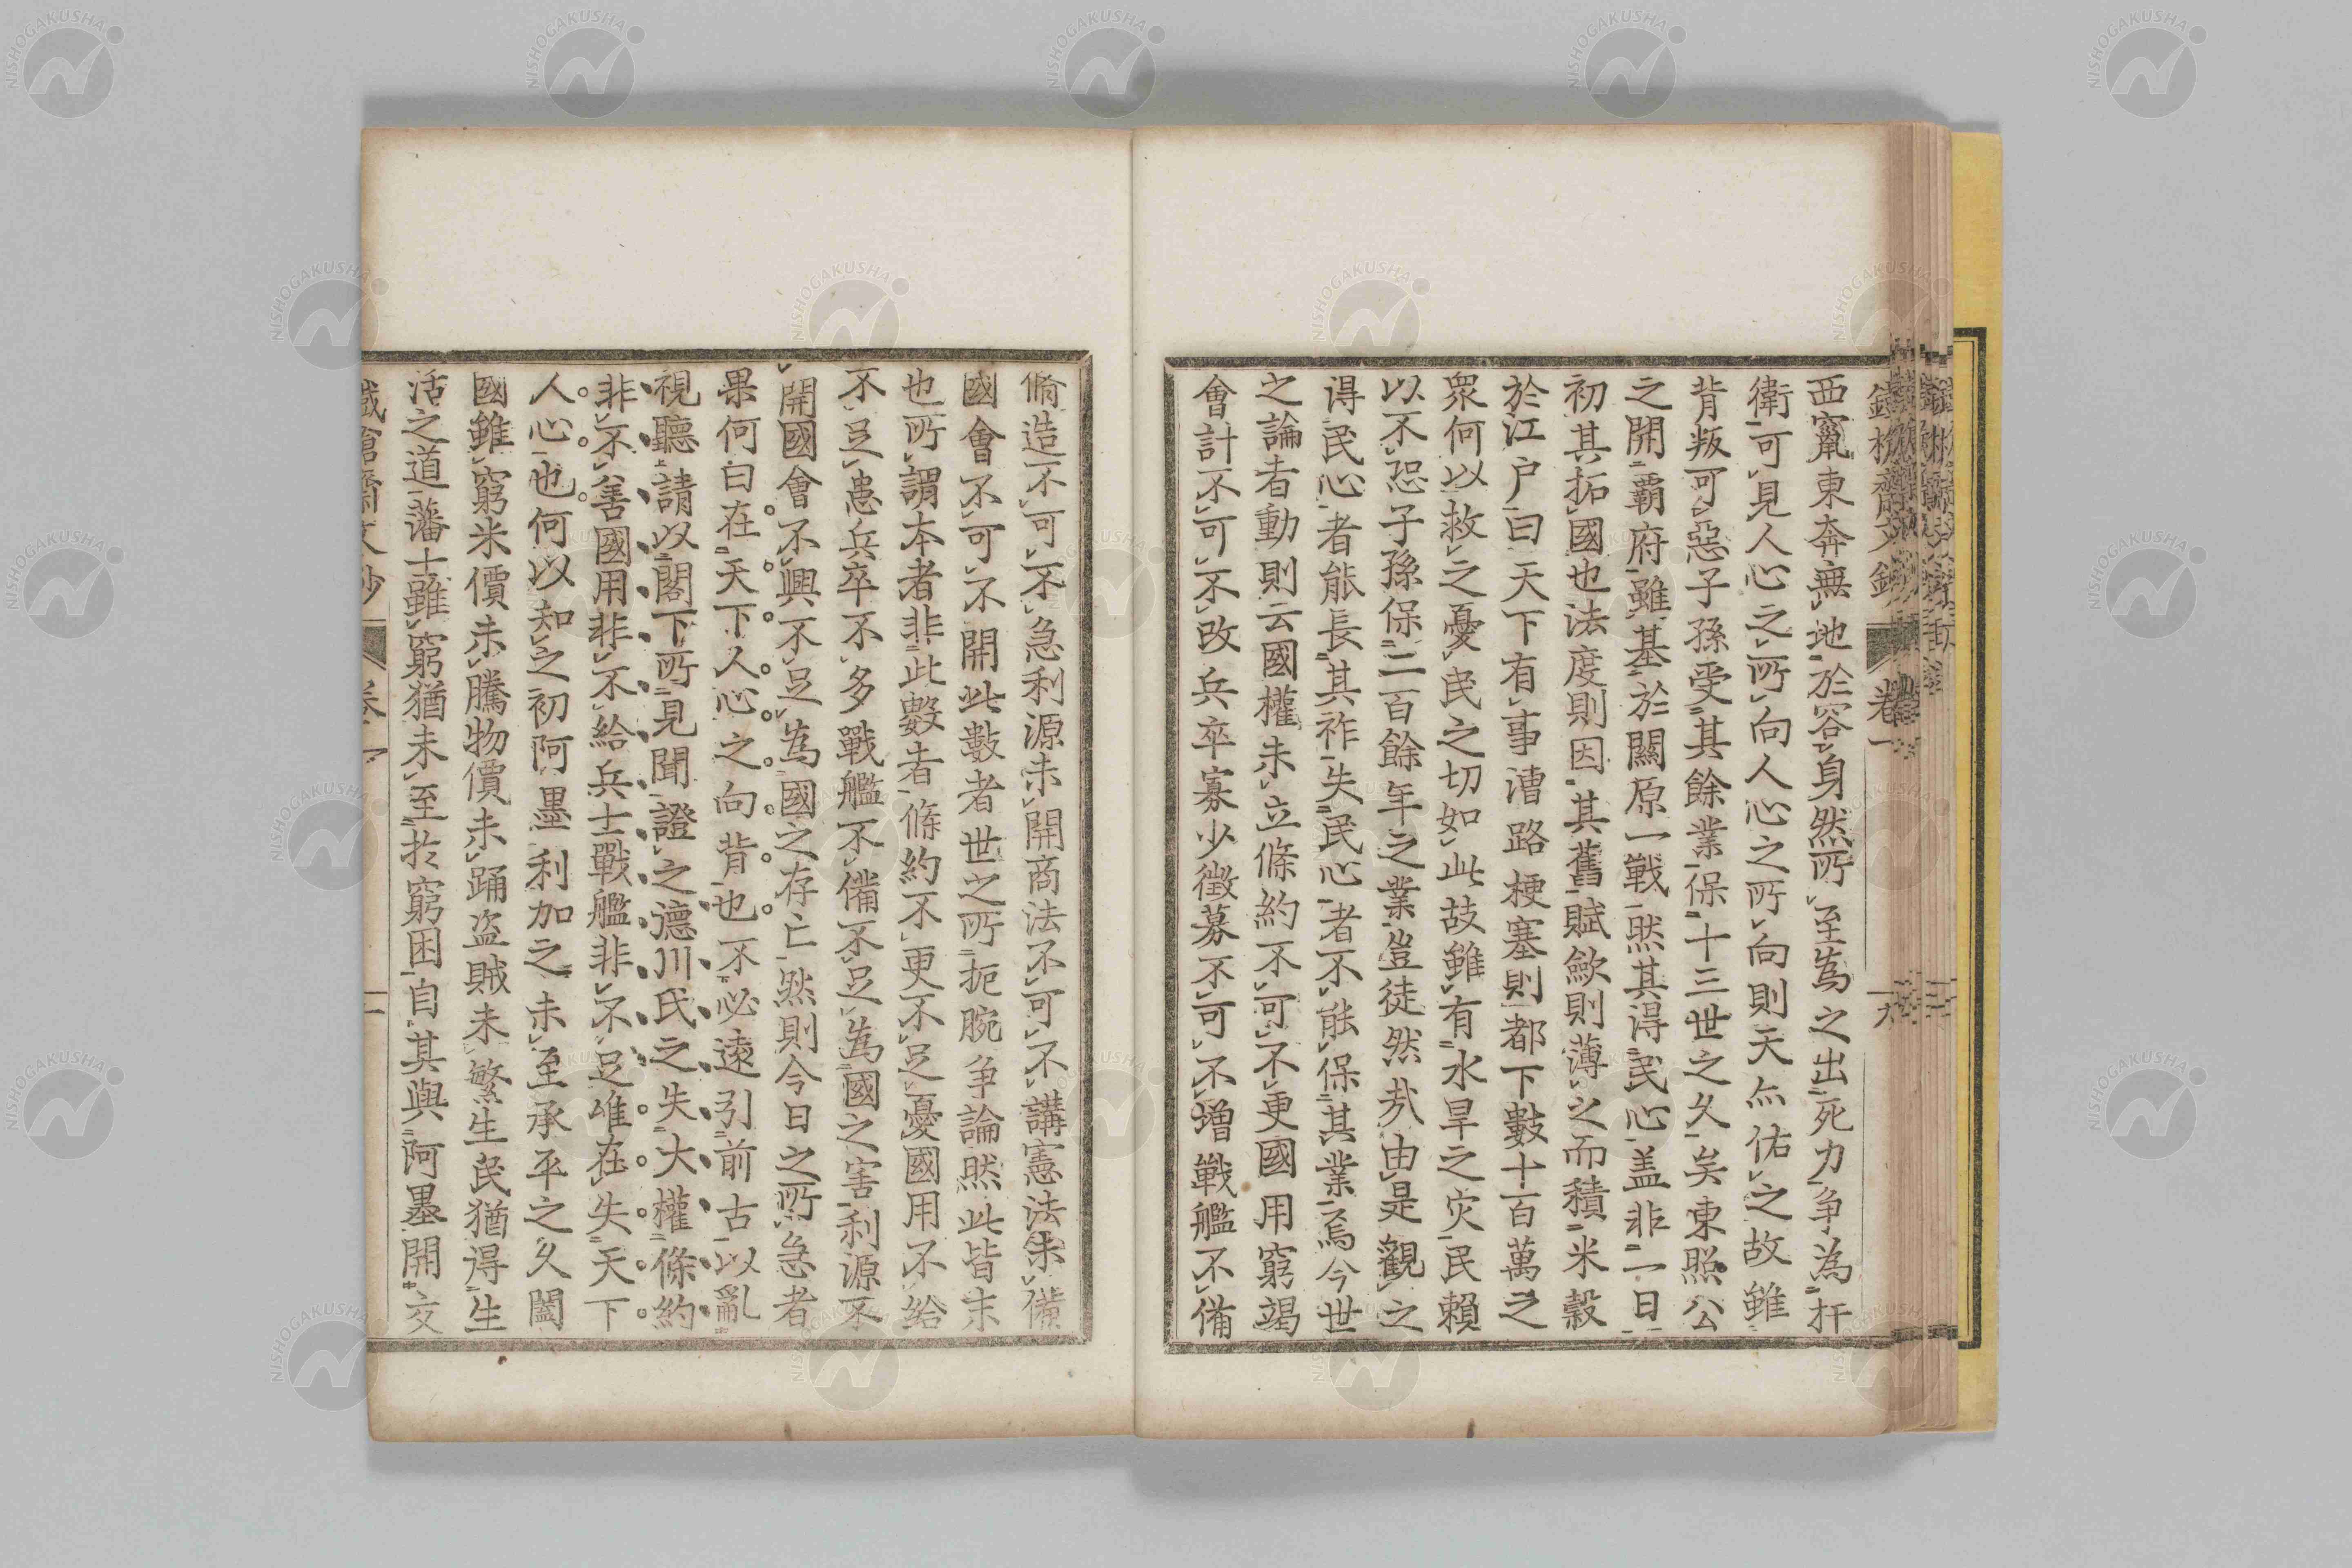 西竄東奔無地於容身然所至為之出死力争為扞
衛可見人心之所向人心之所向則天亦佑之故雖
背叛可惡子孫受其餘業保十三世之久矣東照公
之開覇府雖基於關原一戰然其得民心盖非一日
初其拓國也法度則因其舊賦歛則薄之而積米穀
於江户曰天下有事漕路梗塞則都下數十百萬之
衆何以救之憂民之切如此故雖有水旱之灾民賴
以不恐子孫保二百餘年之業豈徒然哉由是觀之
得民心者能長其祚失民心者不能保其業焉今世
之論者動則云國權未立條約不可不更國用窮竭
會計不可不改兵卒寡少徵募不可不增戰艦不備
脩造不可不急利源未開商法不可不講憲法未備
國會不可不開此數者世之所扼腕争論然此皆末
也所謂本者非此數者條約不更不足憂國用不給
不足患兵卒不多戰艦不備不足為國之害利源不
開國會不興不足為國之存亡然則今日之所急者
果何曰在天下人心之向背也不必遠引前古以亂
視聽請以閣下所見聞證之德川氏之失大權條約
非不善國用非不給兵士戰艦非不足唯在失天下
人心也何以知之初阿墨利加之未至承平之久闔
國雖窮米價未騰物價未踊盗賊未繁生民猶得生
活之道藩士雖窮猶未至於窮困自其與阿墨開交
NISHOGAKUSHA